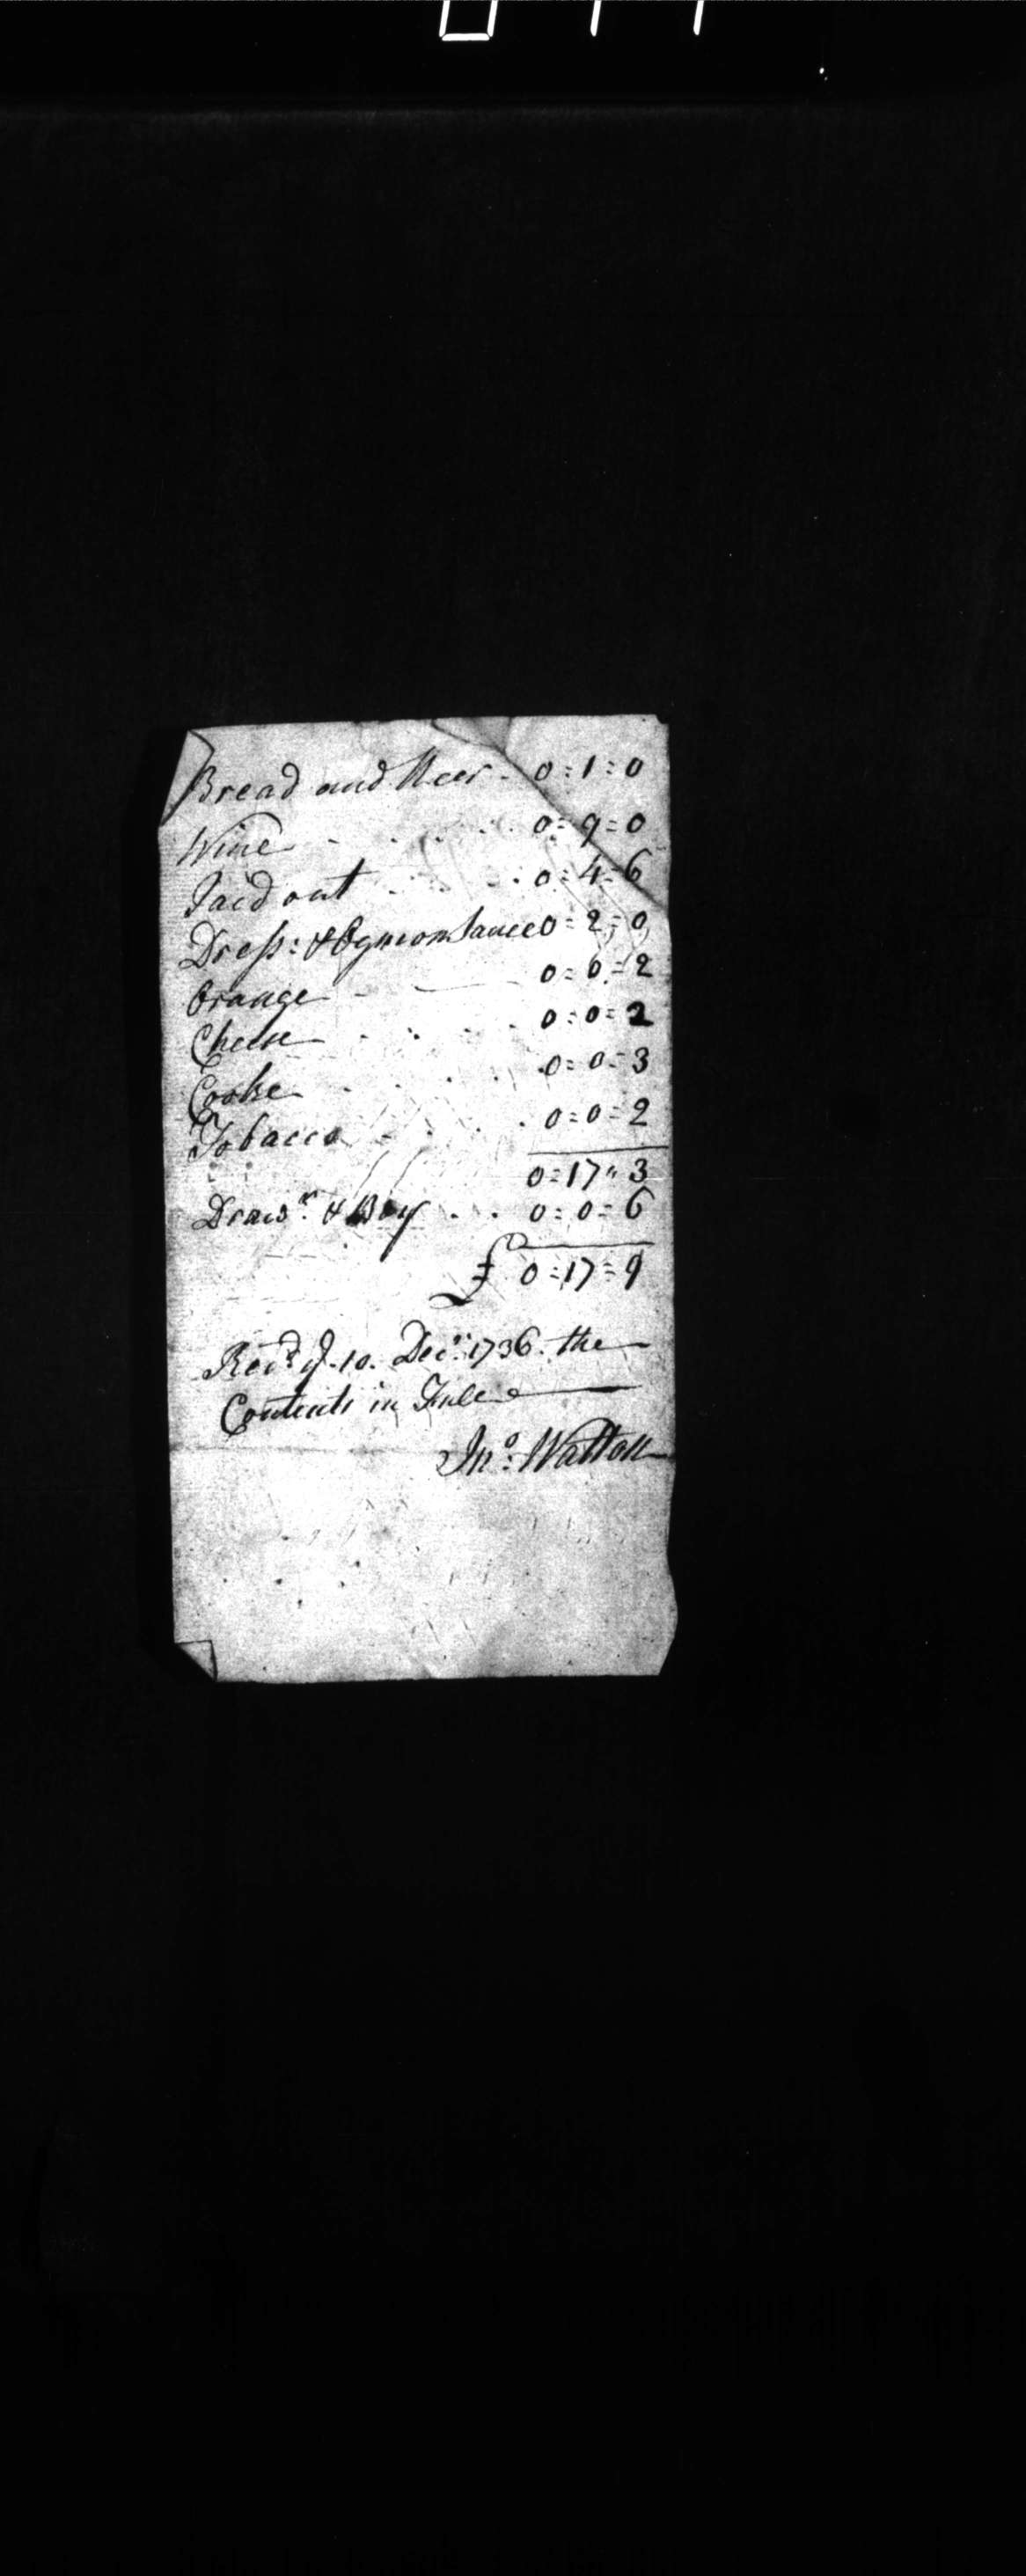 Bread and Beer - 0:1:0
Wine - . . . . 0=9=0
Paid out . . . . 0=4=6
Dress: & Oynion Sauce 0=2=0
Orange - — 0=0=2
Cheese . . . . 0:0=2
Cooke . . . . 0=0=3
Tobacco - . . . 0=0=2
0=17"3
Draw.r & Boy . . . 0=0=6
£ 0=17=9
Rec.d ye. 10. Dec.r 1736. the
Contents in Full
Jn.o: Watton